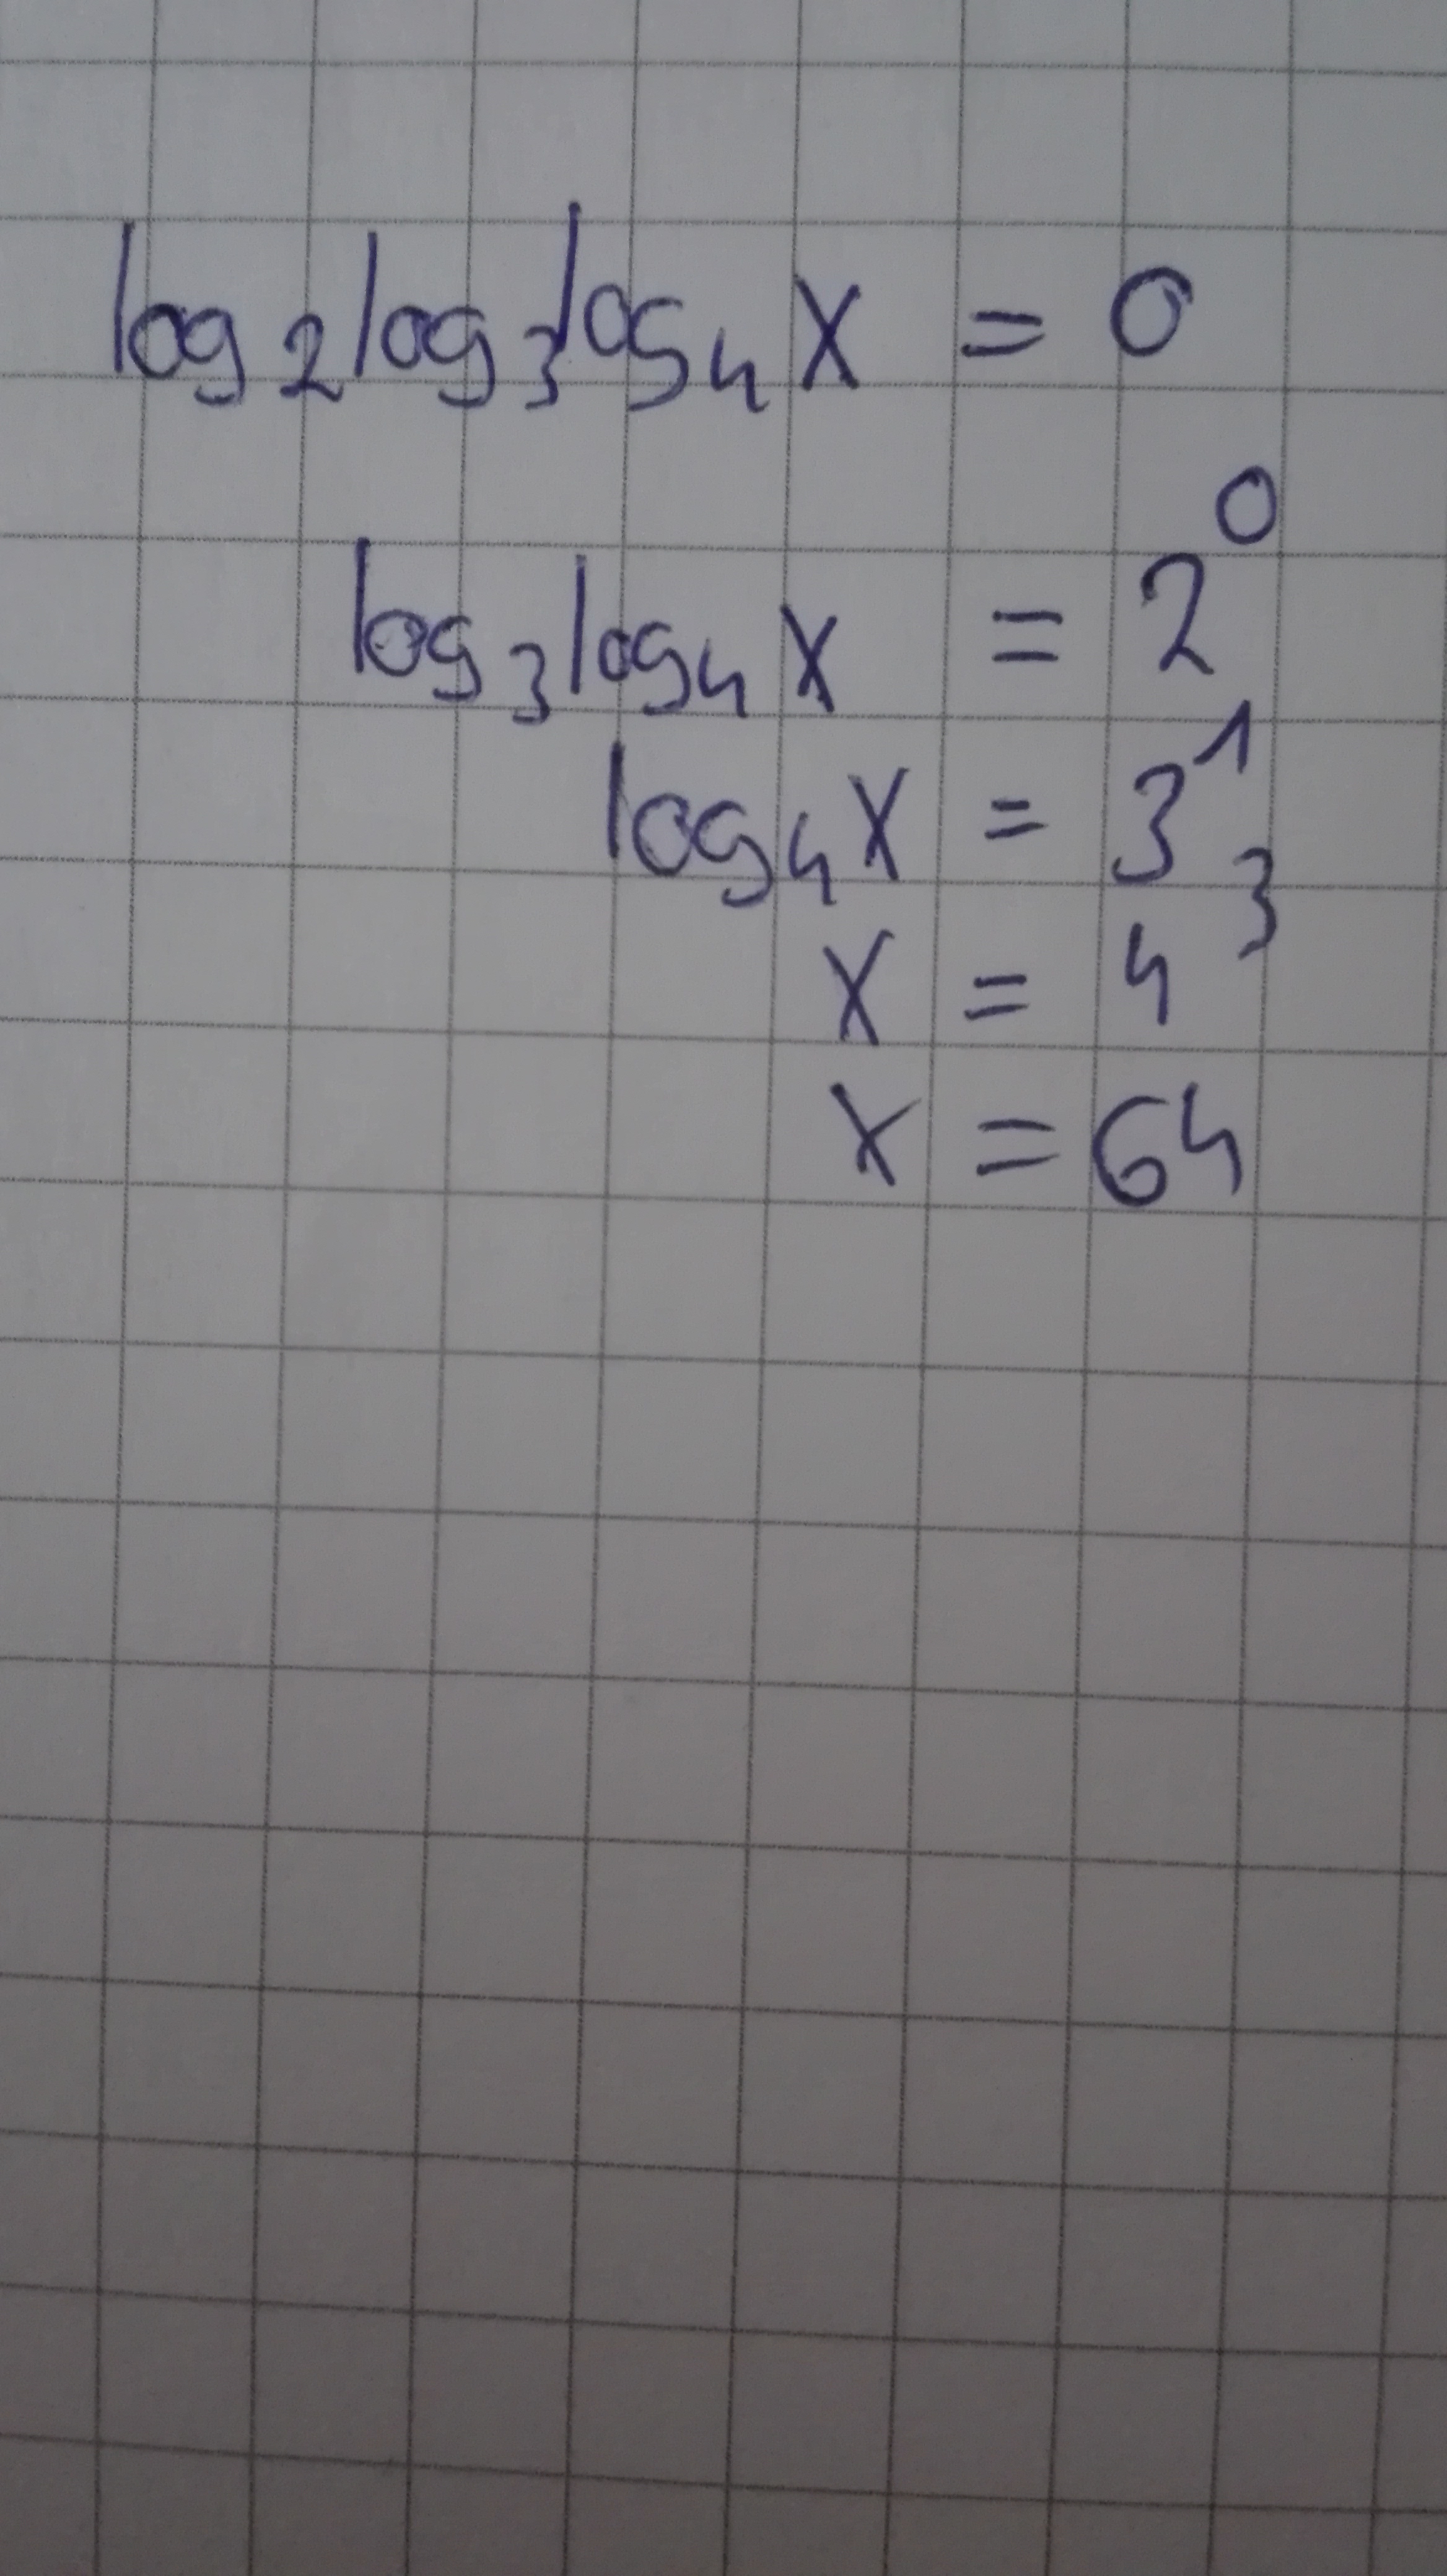 log₂log₃log₄x = 0
log₃log₄x = 2⁰
log₄x = 3¹
x = 4³
x = 64